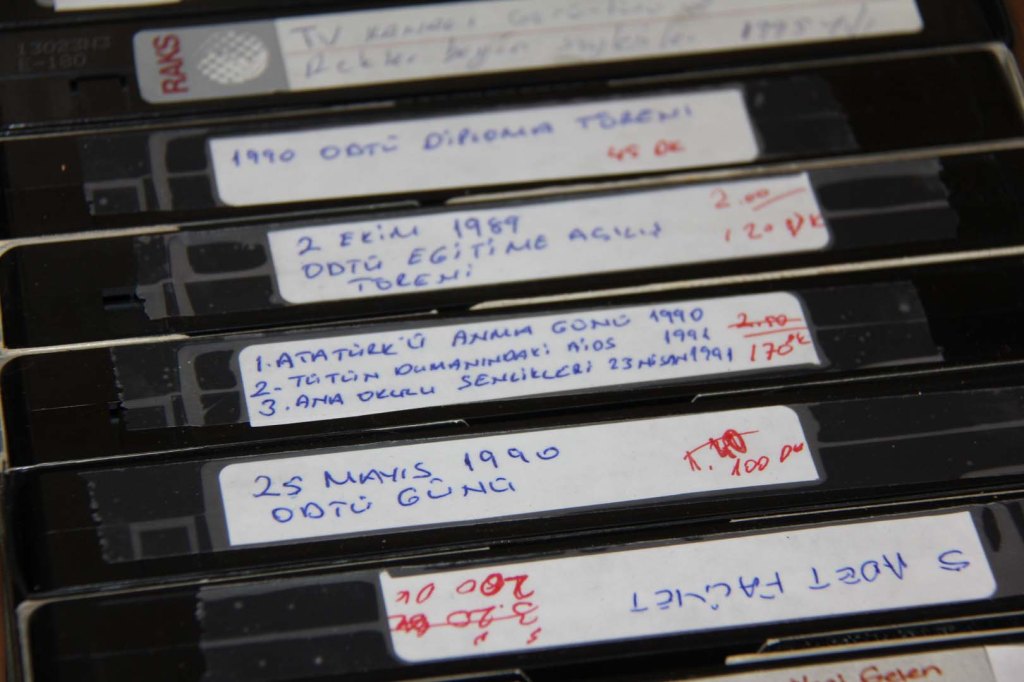 13023N3
E-180
RAKS
TV KANALI
1990 ODTÜ DİPLOMA TÖRENİ
45 DK
2 EKİM 1989
2.00
ODTÜ EĞİTİME AÇILIŞ
120 DK
TÖRENİ
1. ATATÜRK'Ü ANMA GÜNÜ 1990
2 - TÜTÜN DUMANINDAKİ AİDS 1991
3. ANA OKULU ŞENLİKLERİ 23 NİSAN 1991
170 DK
25 MAYIS 1990
ODTÜ GÜNÜ
100 DK
5 ADET FALİYET
3.20
200 DK
Gelen